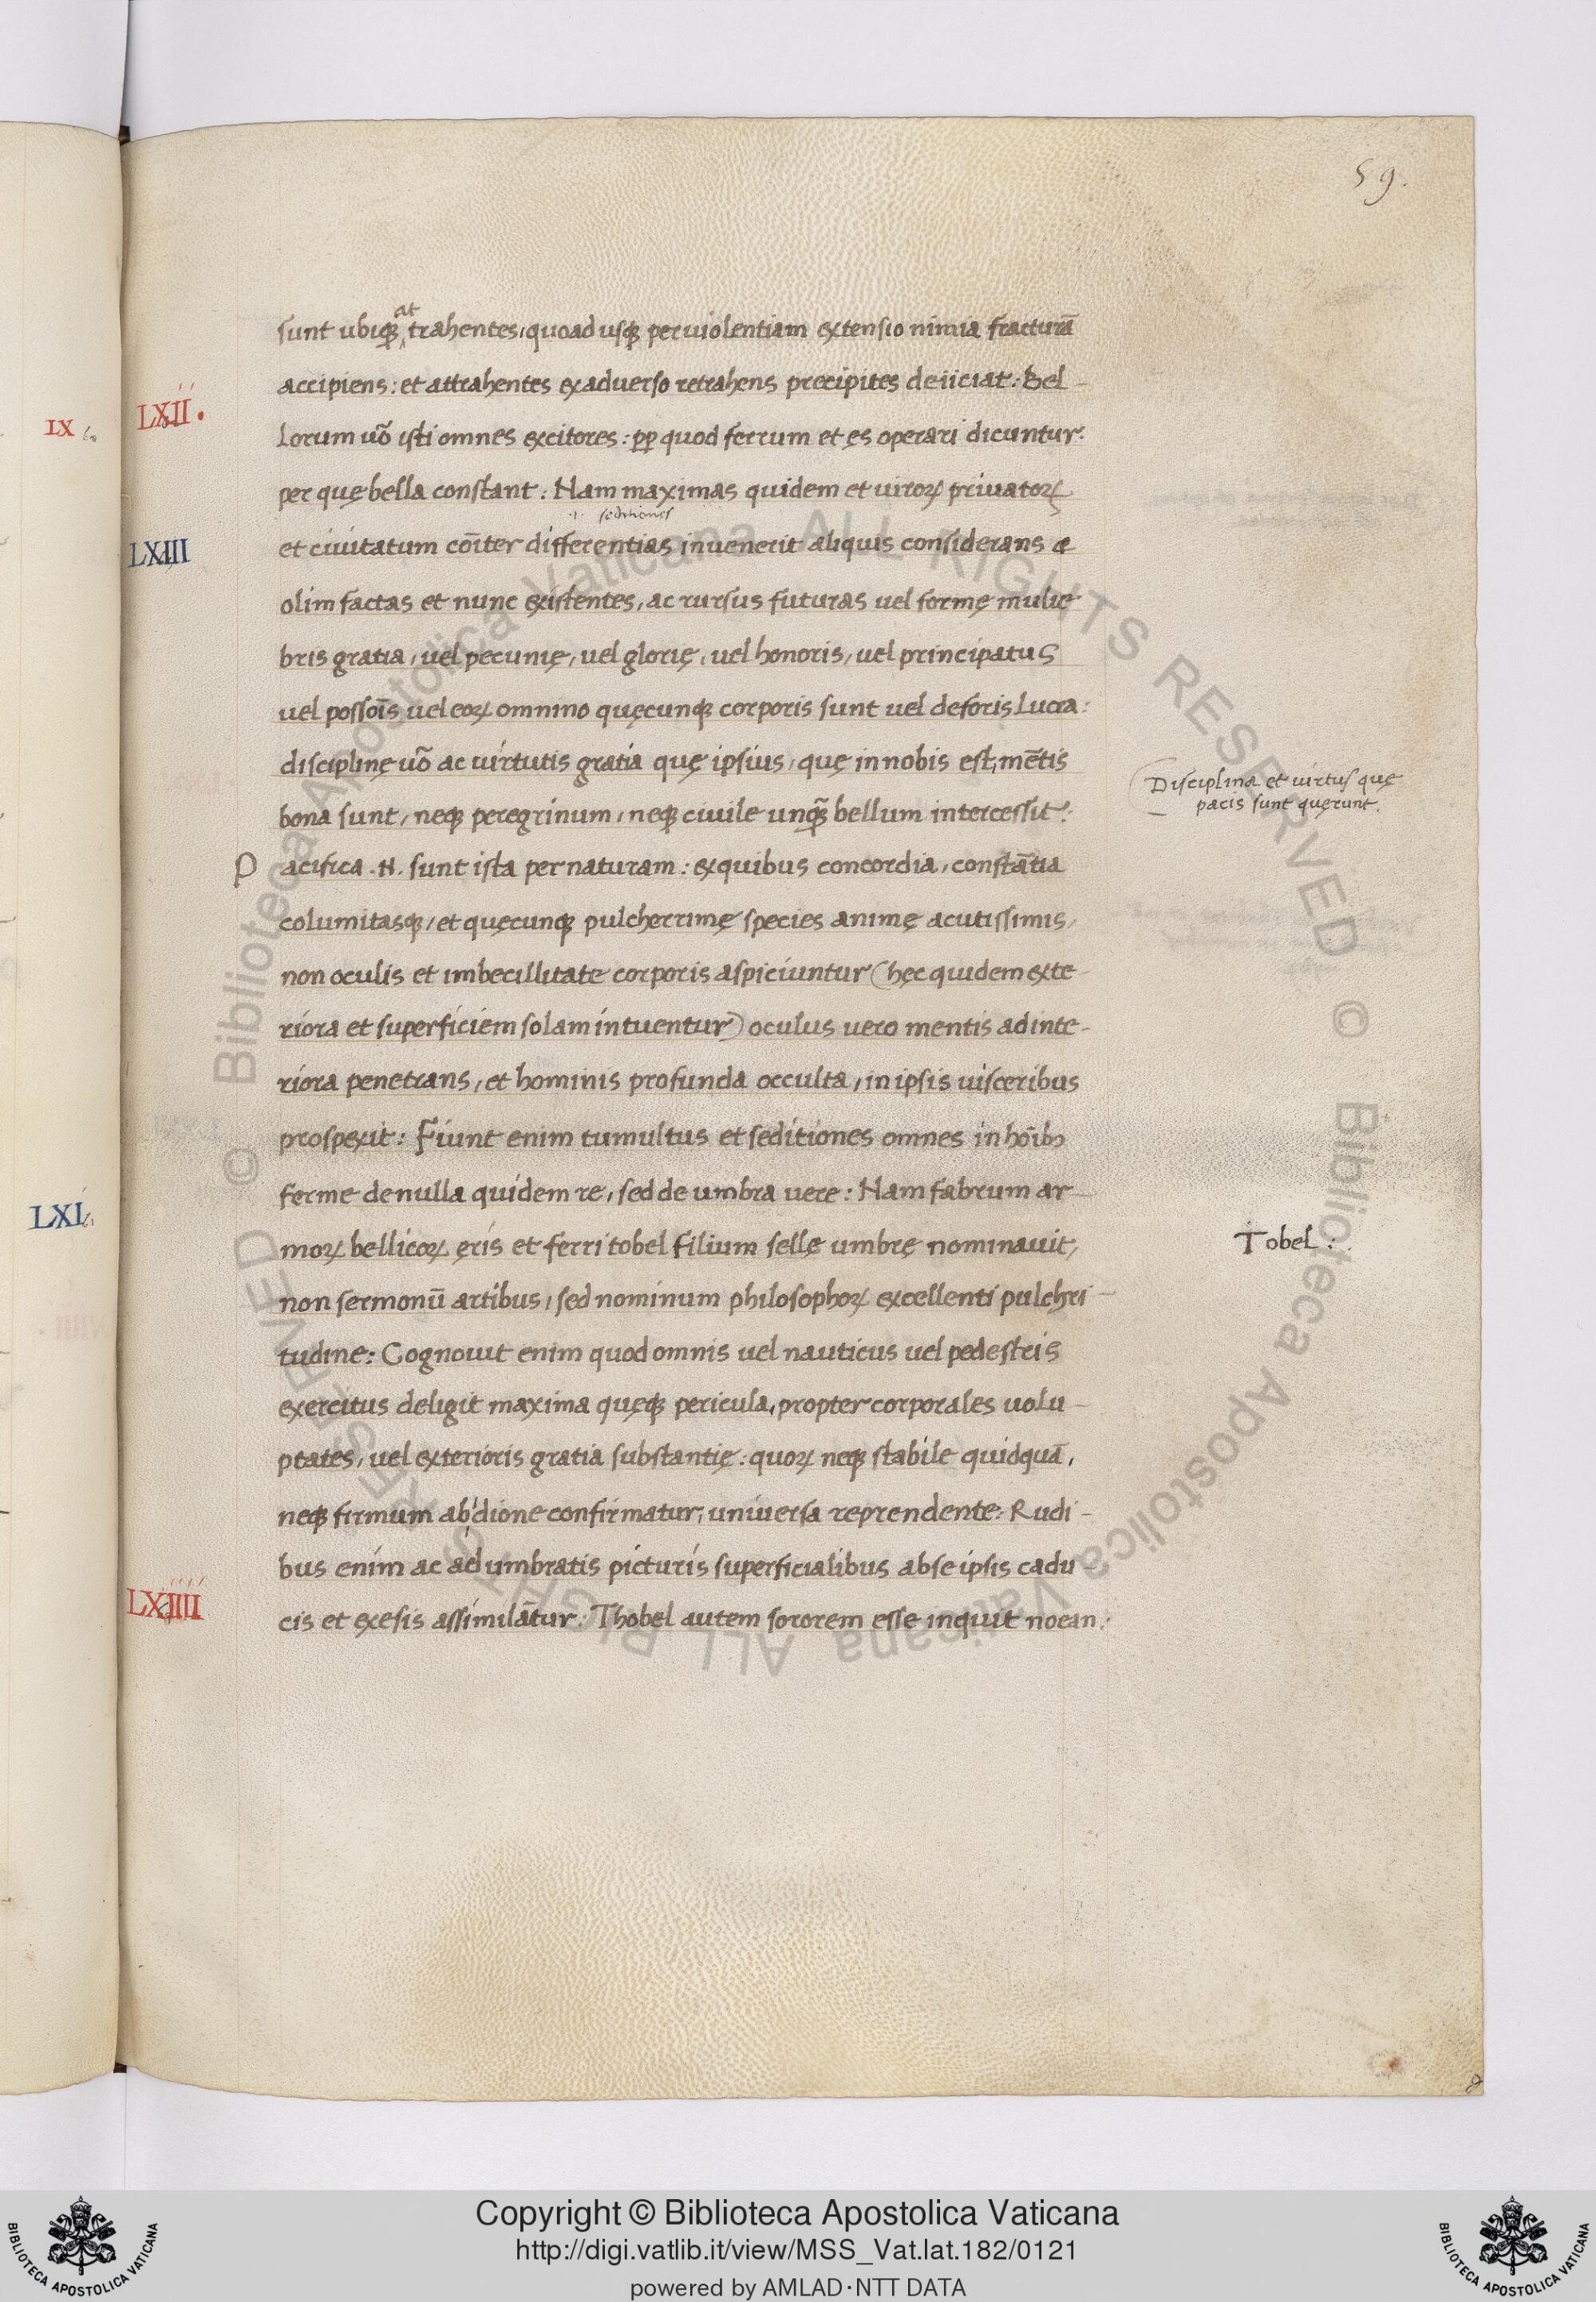 59.
sunt ubiqꝫ attrahentes, quoad usqꝫ per uiolentiam extensio nimia fracturā
accipiens: et attrahentes ex aduerso retrahens precipites deiiciat: Bel-
LXII.
IX
lorum uō isti omnes excitores: ꝓp quod ferrum et ęs operari dicuntur:
per quę bella constant: Nam maximas quidem et uiroꝝ priuatoꝝ
.i. seditiones
LXIII
et ciuitatum cōiter differentias inuenerit aliquis considerans &
olim factas et nunc existentes, ac rursus futuras uel formę mulie
bris gratia, uel pecunię, uel glorię, uel honoris, uel principatus
uel possoīs uel eoꝝ omnino quęcunqꝫ corporis sunt uel deforis lucra:
disciplinę uō ac uirtutis gratia quę ipsius, quę in nobis est, mētis
Disciplina et uirtus quę
pacis sunt quęrunt.
bona sunt, neqꝫ peregrinum, neqꝫ ciuile unqꝫ̃ bellum intercessit:
Pacifica .N. sunt ista per naturam: ex quibus concordia, constātia
columitasqꝫ, et quęcunqꝫ pulcherrimę species animę acutissimis,
non oculis et imbecillitate corporis aspiciuntur (hęc quidem exte-
riora et superficiem solam intuentur) oculus uero mentis ad inte-
riora penetrans, et hominis profunda occulta, in ipsis uisceribus
prospexit: Fiunt enim tumultus et seditiones omnes in hoībꝫ
LXI
ferme de nulla quidem re, sed de umbra uere: Nam fabrum ar-
moꝝ bellicoꝝ ęris et ferri tobel filium sellę umbrę nominauit,
Tobel:
non sermonū artibus, sed nominum philosophoꝝ excellenti pulchri-
tudine: Cognouit enim quod omnis uel nauticus uel pedestris
exercitus deligit maxima quęqꝫ pericula, propter corporales uolu-
ptates, uel exterioris gratia substantię: quoꝝ neqꝫ stabile quidquā,
neqꝫ firmum ab dione confirmatur, uniuersa reprendente: Rudi-
bus enim ac adumbratis picturis superficialibus abse ipsis cadu
LXIIII
cis et exesis assimilātur: Thobel autem sororem esse inquit noean:
Copyright © Biblioteca Apostolica Vaticana
http://digi.vatlib.it/view/MSS_Vat.lat.182/0121
powered by AMLAD·NTT DATA
BIBLIOTECA APOSTOLICA VATICANA
BIBLIOTECA APOSTOLICA VATICANA
© Biblioteca Apostolica Vaticana ALL RIGHTS RESERVED © Biblioteca Apostolica Vaticana ALL RIGHTS RESERVED